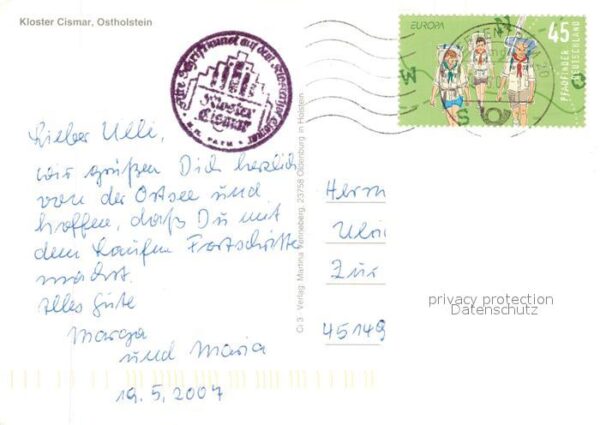 Kloster Cismar, Ostholstein
Kloster
Cismar
EUROPA
45
PFADFINDER
DEUTSCHLAND
Lieber Ulli,
wir grüßen Dich herzlich
von der Ostsee und
hoffen, daß Du mit
dem Laufen Fortschritte
machst.
Alles Gute
Marga
und Maria
19.5.2007
Ci 3 Verlag Martina Tenneberg, 23758 Oldenburg in Holstein
Herrn
Ulri
Zur
45149
privacy protection
Datenschutz